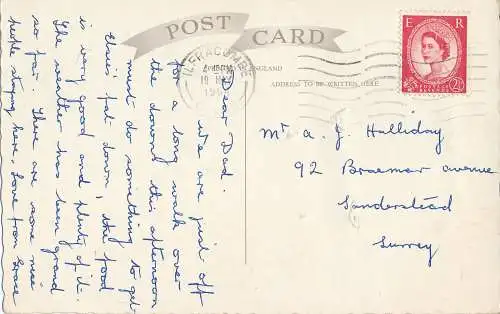 POST CARD
ILFRACOMBE
ENGLAND
ADDRESS TO BE WRITTEN HERE
E R
2½D
Dear Dad.
We are just off
for a long walk over
the downs this afternoon
must do something to get
this fat down, the food
is very good and plenty of it.
The weather has been grand
so far. There are some nice
people staying here Love from Grace
Mr A. J. Halliday
92 Braemar Avenue
Sanderstead
Surrey